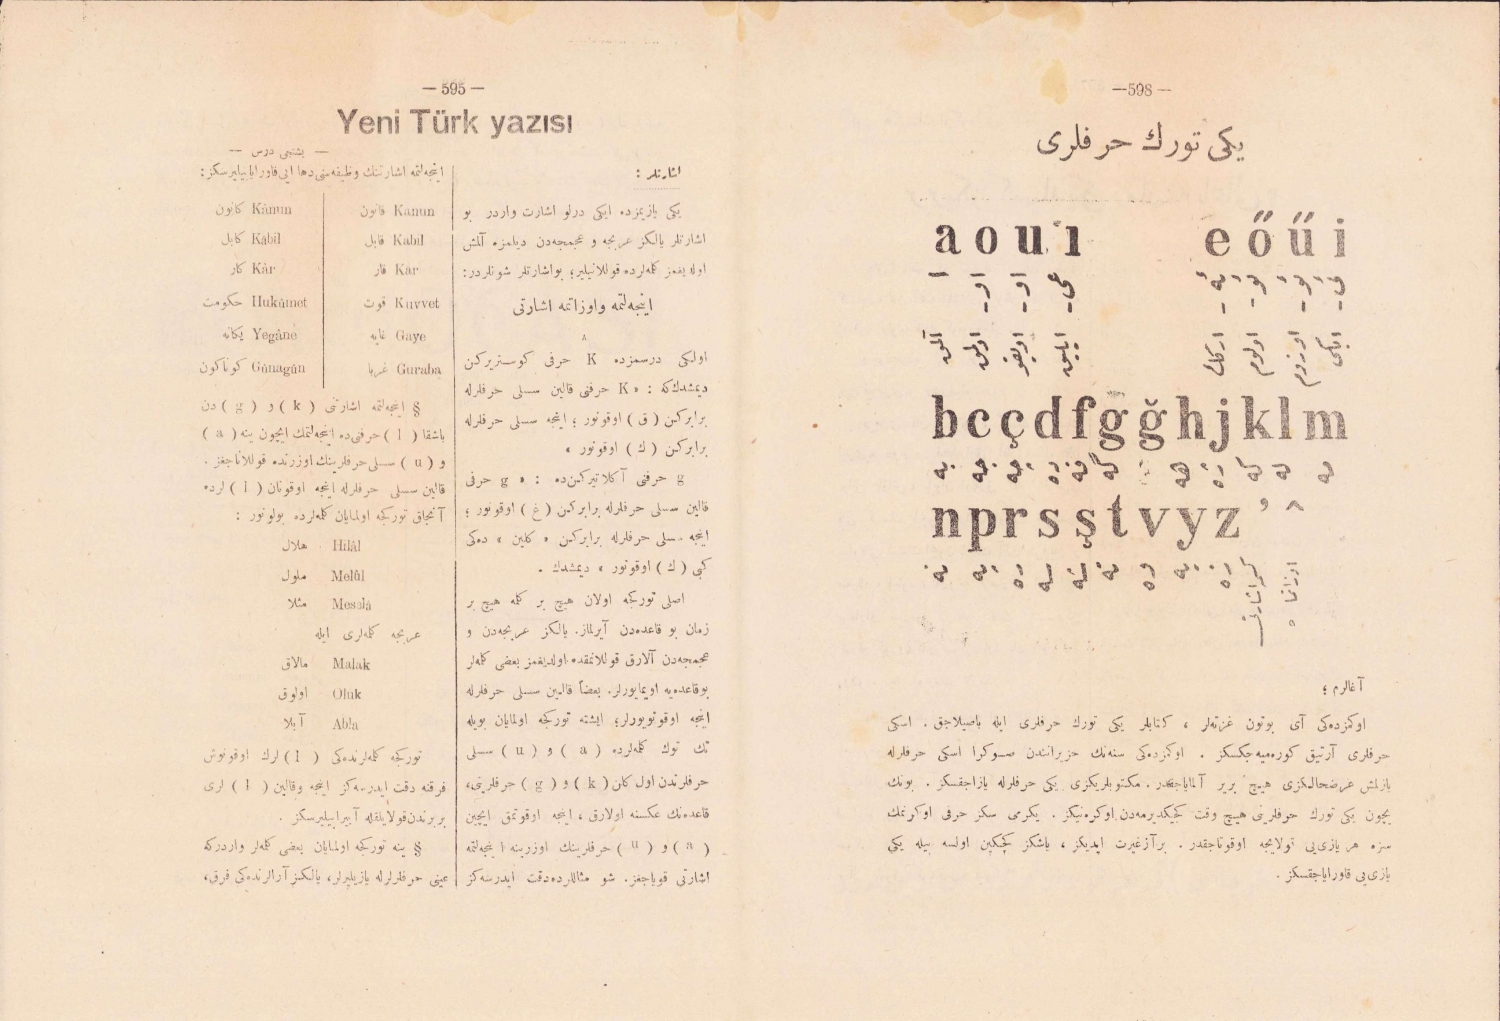 — 595 —
Yeni Türk yazısı
— بشنجی درس —
اشارتلر :
یکی یازیمزده ایکی درلو اشارت واردر بو
اشارتلر یالکز عربجه و عجمجه‌دن دیلمزه آلمش
اولدیغمز کلمه‌لرده قوللانیلیر؛ بواشارتلر شونلردر:
اینجه‌لتمه واوزاتمه اشارتی
^
اولکی درسمزده K حرفی کوستریرکن
دیمشدک‌که : « K حرفنی قالین سسلی حرفلرله
برابرکن ( ق ) اوقونور ؛ اینجه سسلی حرفلرله
برابرکن ( ك ) اوقونور »
g حرفنی آکلاتیرکن‌ده : « g حرفی
قالین سسلی حرفلرله برابرکن ( غ ) اوقونور ؛
اینجه سسلی حرفلرله برابرکن « کلین » ده‌کی
کبی ( ك ) اوقونور » دیمشدك .
اصلی تورکجه اولان هیچ بر کلمه هیچ بر
زمان بو قاعده‌دن آیرلماز. یالکز عربجه‌دن و
عجمجه‌دن آلارق قوللانمقده اولدیغمز بعضی کلمه‌لر
بوقاعده‌یه اویمایورلر. بعضاً قالین سسلی حرفلرله
اینجه اوقونویورلر؛ ایشته تورکجه اولمایان بویله
تك توك کلمه‌لرده ( a ) و ( u ) سسلی
حرفلرندن اول کلن ( k ) و ( g ) حرفلرینی،
قاعده‌نك عکسنه اولارق ، اینجه اوقوتمق ایچین
( a ) و ( u ) حرفلرینك اوزرینه اینجه‌لتمه
اشارتی قویاجغز. شو مثاللرده‌دقت ایدرسه‌کز
اینجه‌لتمه اشارتنك وظیفه‌سنی‌دها ایی قاورایابیلیرسکز:
Kanun قانون Kânun کانون
Kabil قابل Kâbil کابل
Kar قار Kâr کار
Kuvvet قوت Hukûmet حکومت
Gaye غایه Yegâne یکانه
Guraba غربا Gûnagûn کوناکون
§ اینجه‌لتمه اشارتنی ( k ) و ( g ) دن
باشقا ( l ) حرفی‌ده اینجه‌لتمك ایچون ینه ( a )
و ( u ) سسلی حرفلرینك اوزرنده قوللاناجغز .
قالین سسلی حرفلرله اینجه اوقونان ( l ) لرده
آنجاق تورکجه اولمایان کلمه‌لرده بولونور :
Hilâl هلال
Melûl ملول
Meselâ مثلا
عربجه کلمه‌لری ایله
Malak مالاق
Oluk اولوق
Abla آبلا
تورکجه کلمه‌لرنده‌کی ( l ) لرك اوقونوش
فرقنه دقت ایدرسه‌کز اینجه وقالین ( l ) لری
بربرندن‌قولایلقله آییرابیلیرسکز .
§ ینه تورکجه اولمایان بعضی کلمه‌لر واردرکه
عینی حرفلرله یازیلیرلر، یالکز آرالرنده‌کی فرق،
— 598 —
یکی تورك حرفلری
a o u ı e ő ű i
آلتی
b c ç d f g ğ h j k l m
به جه چه ده فه گه هه ژه که له مه
n p r s ş t v y z ’ ^
نه په ره سه شه ته وه یه زه
کسر اشارتی
اوزاتما
آغالرم ؛
اوکزده‌کی آی بوتون غزته‌لر ، کتابلر یکی تورك حرفلری ایله باصیلاجق. اسکی
حرفلری آرتیق کوره‌میه‌جکسکز . اوکزده‌کی سنه‌نك حزیرانندن صوکرا اسکی حرفلرله
یازلمش عرضحالکزی هیچ بریر آلمایاجقدر. مکتوبلریکزی یکی حرفلرله یازاجقسکز . بونك
ایچون یکی تورك حرفلرینی هیچ وقت کچیکدیرمه‌دن‌اوکره‌نیکز . یکرمی سکز حرفی اوکرنمك
سزه هر یازی‌یی قولایجه اوقوتاجقدر. برآزغیرت ایدیکز ، یاشکز کچکین اولسه بیله یکی
یازی‌یی قاورایاجقسکز .